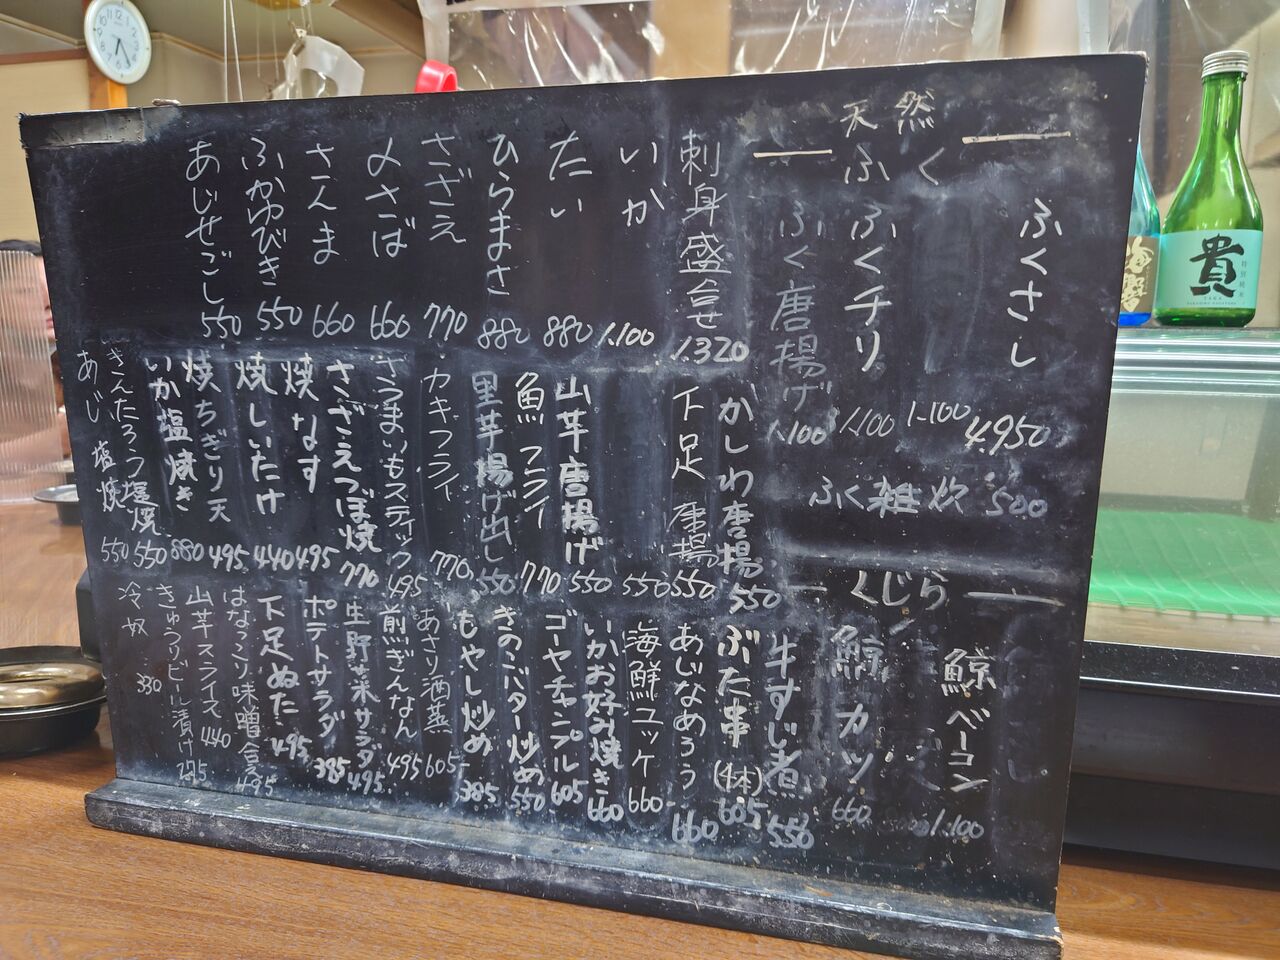 天然
ふく
ふくさし 4,950
1,100
ふくチリ 1,100
ふく唐揚げ 1,100
ふく雑炊 500
くじら
鯨ベーコン 1,100
鯨カツ 660
刺身盛合せ 1,320
いか 1,100
たい 880
ひらまさ 880
さざえ 770
〆さば 660
さんま 660
ふかゆびき 550
あじせごし 550
かしわ唐揚 550
下足唐揚 550
550
山芋唐揚げ 550
魚フライ 770
里芋揚げ出し 550
カキフライ 770
さつまいもスティック 495
さざえつぼ焼 770
焼なす 495
焼しいたけ 440
焼ちぎり天 495
いか塩焼き 880
きんたろう塩焼 550
あじ塩焼 550
牛すじ煮 550
ぶた串(4本) 605
あじなめろう 660
海鮮ユッケ 660
いかお好み焼き 660
ゴーヤチャンプル 605
きのこバター炒め 550
もやし炒め 385
あさり酒蒸 605
煎ぎんなん 495
生野菜サラダ 495
ポテトサラダ 385
下足ぬた 495
はなっこり味噌合え 495
山芋スライス 440
きゅうりビール漬け 275
冷奴 330
貴
特別純米
TAKA